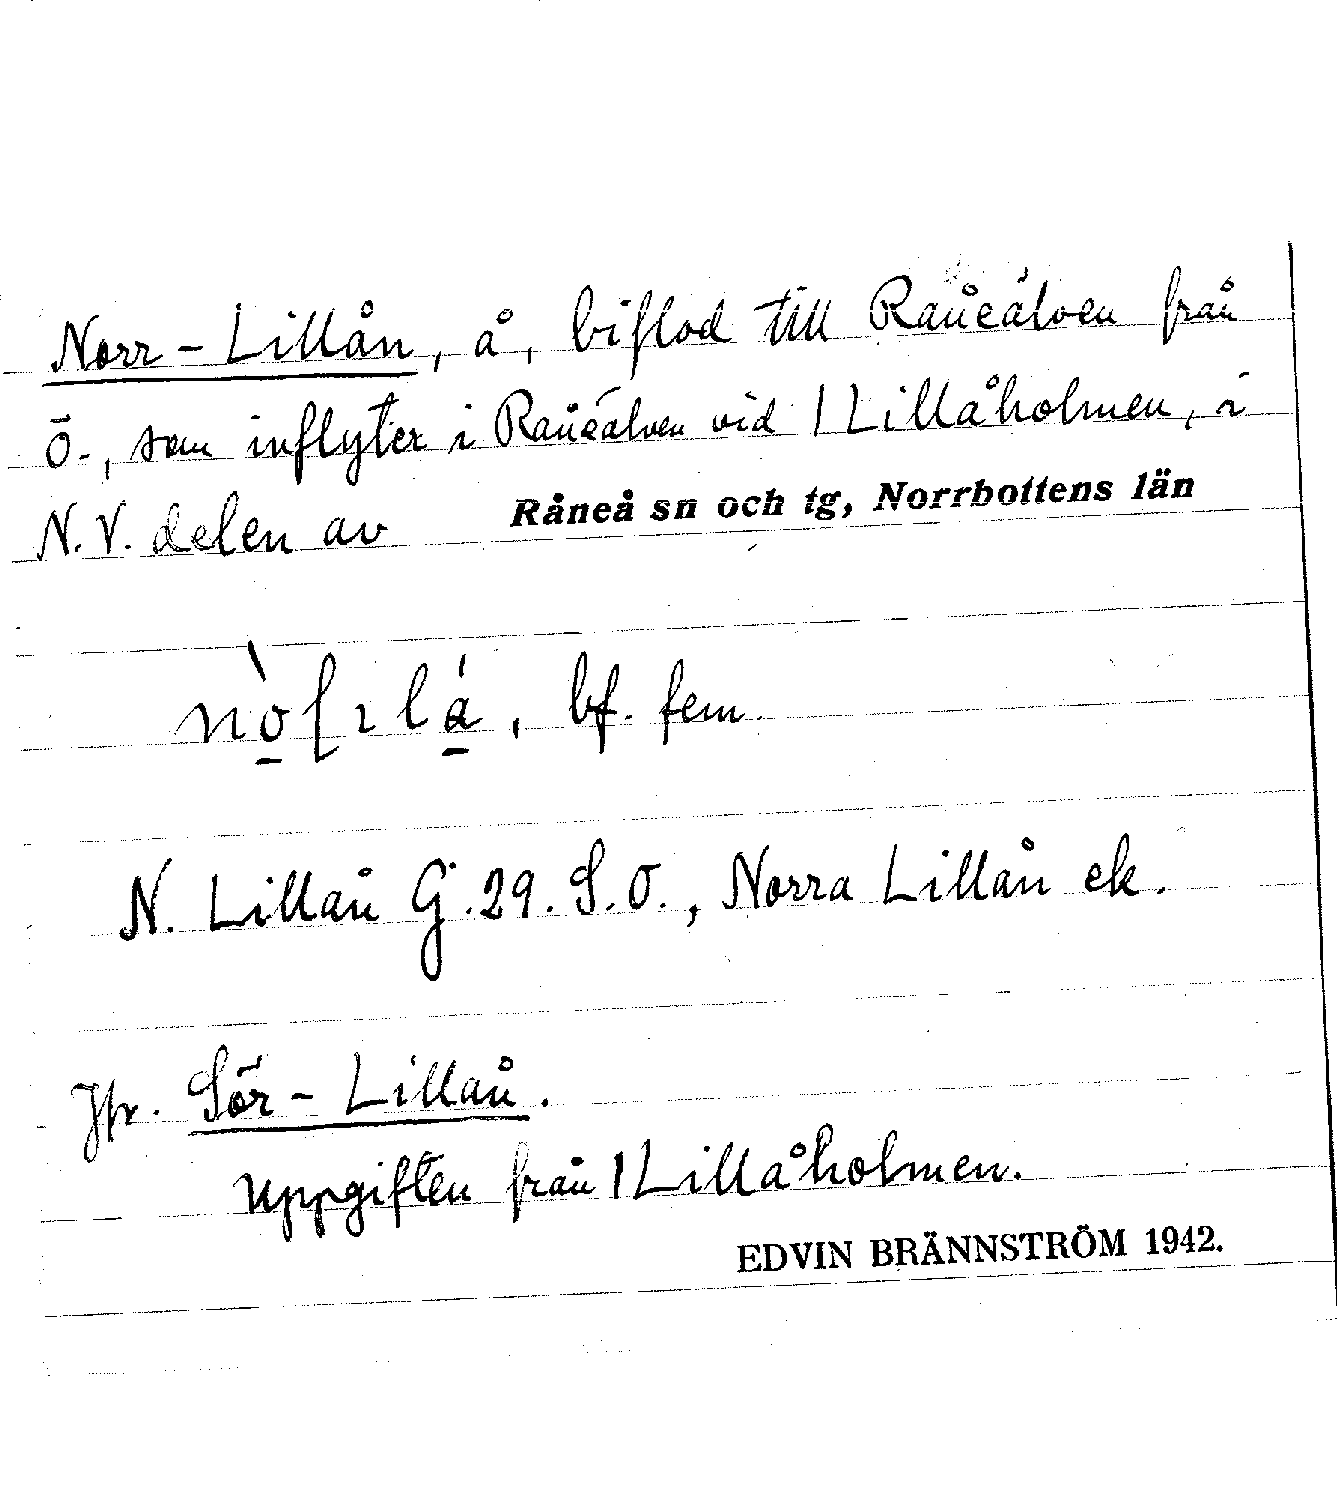 Norr-Lillån, å, biflod till Råneälven från
Ö., som inflyter i Råneälven vid | Lillåholmen, i
N.V. delen av Råneå sn och tg, Norrbottens län
bf. fem.
N. Lillån G.29. S.O., Norra Lillån ek.
Jfr. Sör-Lillån.
Uppgiften från | Lillåholmen.
EDVIN BRÄNNSTRÖM 1942.